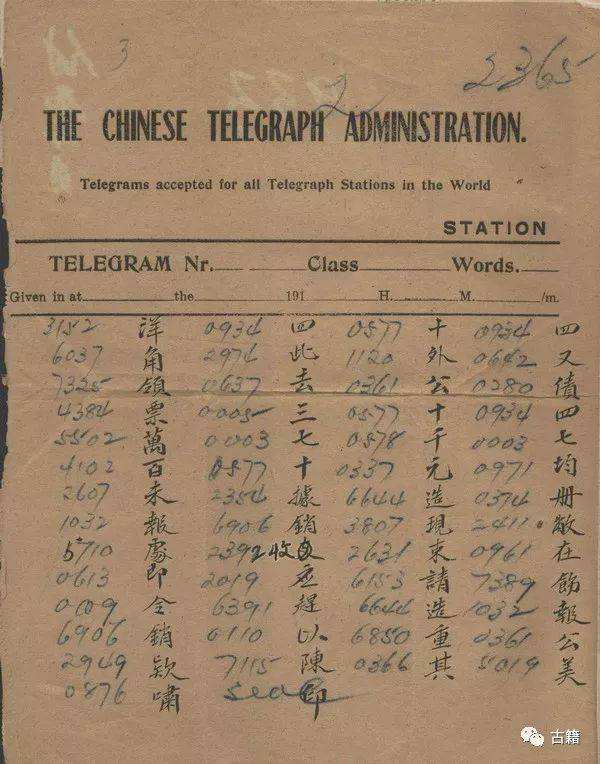 3
2
2365
THE CHINESE TELEGRAPH ADMINISTRATION.
Telegrams accepted for all Telegraph Stations in the World
STATION
TELEGRAM Nr. Class Words.
Given in at the 191 H. M. /m.
3152 洋 0934 四 0577 十 0934 四
6037 角 2974 此 1120 外 0642 又
7325 領 0637 去 0361 公 0280 債
4384 票 0005 三 0577 十 0934 四
5502 萬 0003 七 0578 千 0003 七
4102 百 0577 十 0337 元 0971 均
2607 未 2354 據 6644 造 0374 册
1032 報 6906 銷 3807 現 2411
5710 處 2392 收 2631 束 0961 在
0613 即 2019 6153 請 7389 飭
令 6391 6644 造 1032 報
6906 銷 0110 以 6850 重 0361 公
2949 欵 7115 陳 0366 其 5019 美
0876 嘯 seal 印
古籍